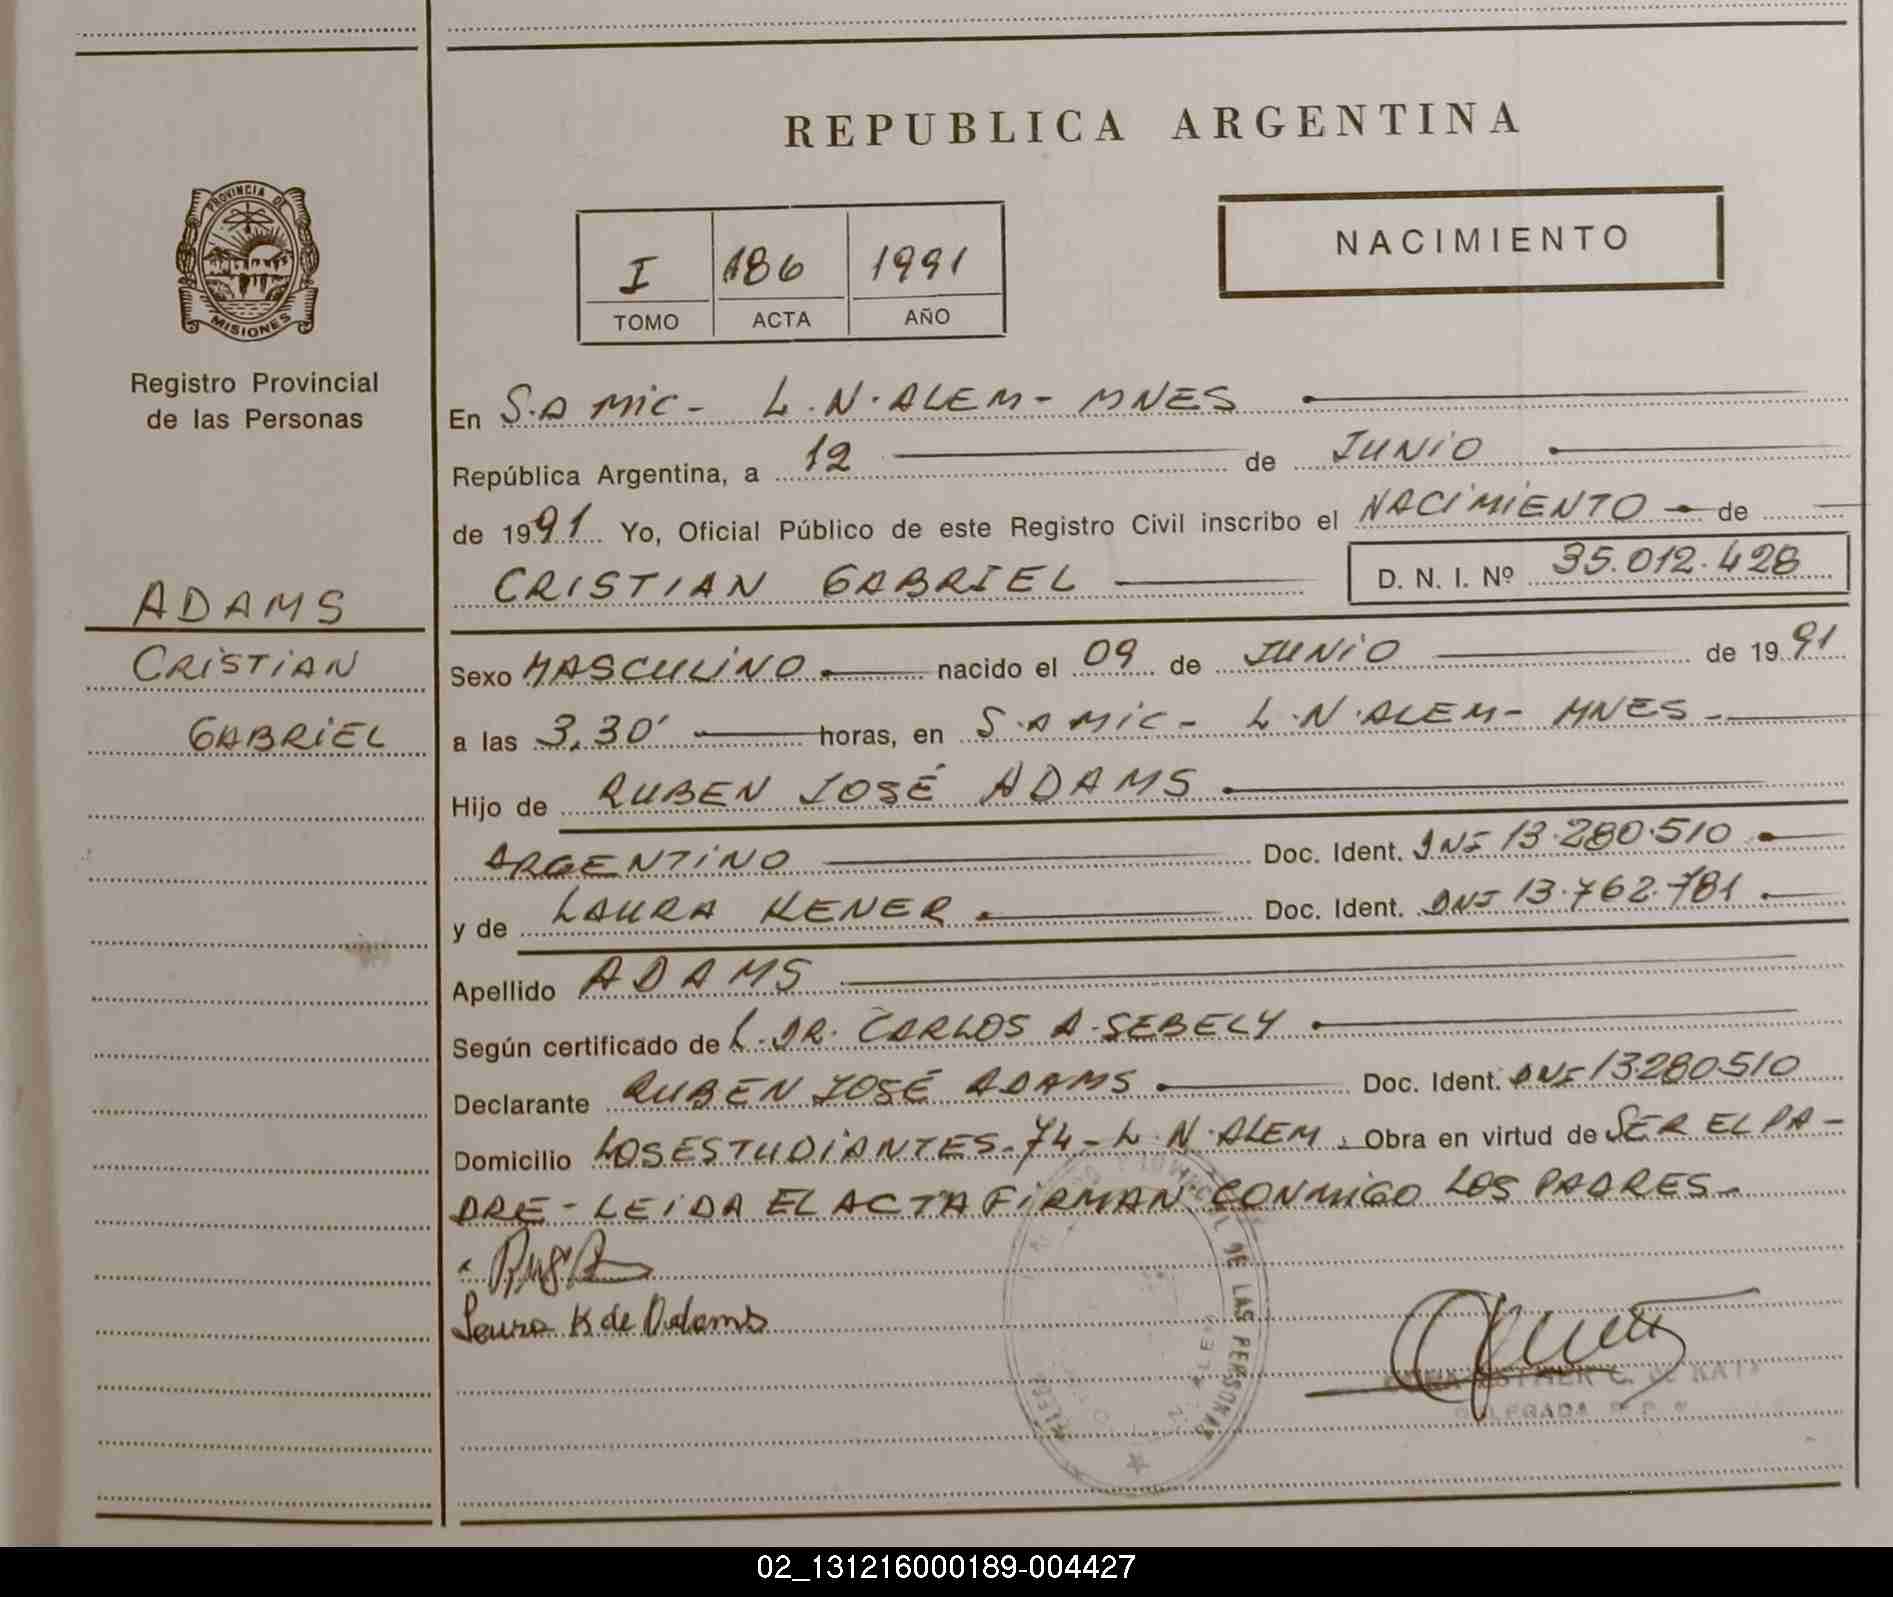 REPUBLICA ARGENTINA
PROVINCIA DE
MISIONES
Registro Provincial
de las Personas
I 186 1991
TOMO ACTA AÑO
NACIMIENTO
En S.A MIC- L.N.ALEM- MNES
República Argentina, a 12 de JUNIO
de 1991 Yo, Oficial Público de este Registro Civil inscribo el NACIMIENTO de
CRISTIAN GABRIEL D. N. I. Nº 35.012.428
ADAMS
CRISTIAN
GABRIEL
Sexo MASCULINO nacido el 09 de JUNIO de 1991
a las 3,30' horas, en S.A MIC- L.N.ALEM- MNES-
Hijo de RUBEN JOSÉ ADAMS
ARGENTINO Doc. Ident. DNI 13.280.510
y de LAURA KENER Doc. Ident. DNI 13.762.781
Apellido ADAMS
Según certificado de L.DR. CARLOS A.SEBELY
Declarante RUBEN JOSÉ ADAMS Doc. Ident. DNI 13280510
Domicilio LOS ESTUDIANTES-74-L.N.ALEM. Obra en virtud de SER EL PA-
DRE-LEIDA EL ACTA FIRMAN CONMIGO LOS PADRES-
Laura K de Adams
DE LAS PERSONAS
02_131216000189-004427